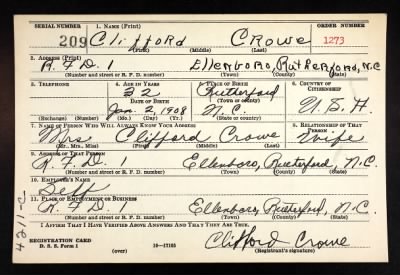 SERIAL NUMBER 1. NAME (Print) ORDER NUMBER
209 Clifford Crowe 1273
(First) (Middle) (Last)
2. ADDRESS (Print)
R.F.D. 1 Ellenboro, Rutherford, N.C.
(Number and street or R. F. D. number) (Town) (County) (State)
3. TELEPHONE 4. AGE IN YEARS 5. PLACE OF BIRTH 6. COUNTRY OF CITIZENSHIP
32 Rutherford
DATE OF BIRTH (Town or county)
Jan. 2, 1908 N.C. U.S.A.
(Exchange) (Number) (Mo.) (Day) (Yr.) (State or country)
7. NAME OF PERSON WHO WILL ALWAYS KNOW YOUR ADDRESS 8. RELATIONSHIP OF THAT PERSON
Mrs Clifford Crowe Wife
(Mr., Mrs., Miss) (First) (Middle) (Last)
9. ADDRESS OF THAT PERSON
R.F.D. 1 Ellenboro, Rutherford, N.C.
(Number and street or R. F. D. number) (Town) (County) (State)
10. EMPLOYER'S NAME
Self
11. PLACE OF EMPLOYMENT OR BUSINESS
R.F.D. 1 Ellenboro, Rutherford, N.C.
(Number and street or R. F. D. number) (Town) (County) (State)
I AFFIRM THAT I HAVE VERIFIED ABOVE ANSWERS AND THAT THEY ARE TRUE.
REGISTRATION CARD
D. S. S. Form 1 (over) 16—17105 Clifford Crowe
(Registrant's signature)